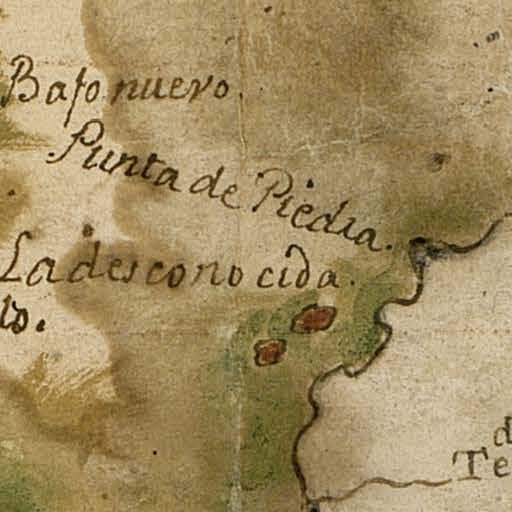 Bajo nuevo.
Punta de Piedra.
La desconocida.
d
Te